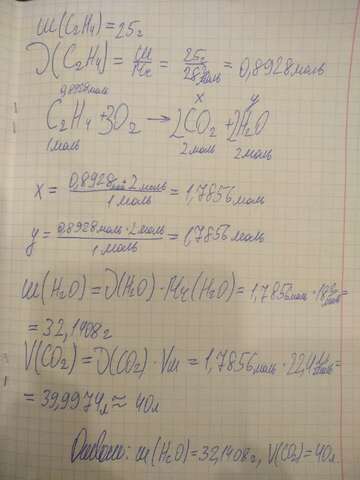 m(C₂H₄)=25г
ν(C₂H₄)=m/Mr=25г/28г/моль=0,8928моль
0,8928моль x y
C₂H₄+3O₂→2CO₂+2H₂O
1моль 2моль 2моль
x=0,8928моль·2моль/1моль=1,7856моль
y=0,8928моль·2моль/1моль=1,7856моль
m(H₂O)=ν(H₂O)·Mr(H₂O)=1,7856моль·18г/моль=
=32,1408г
V(CO₂)=ν(CO₂)·Vm=1,7856моль·22,4л/моль=
=39,9974л≈40л
Ответ: m(H₂O)=32,1408г, V(CO₂)=40л.